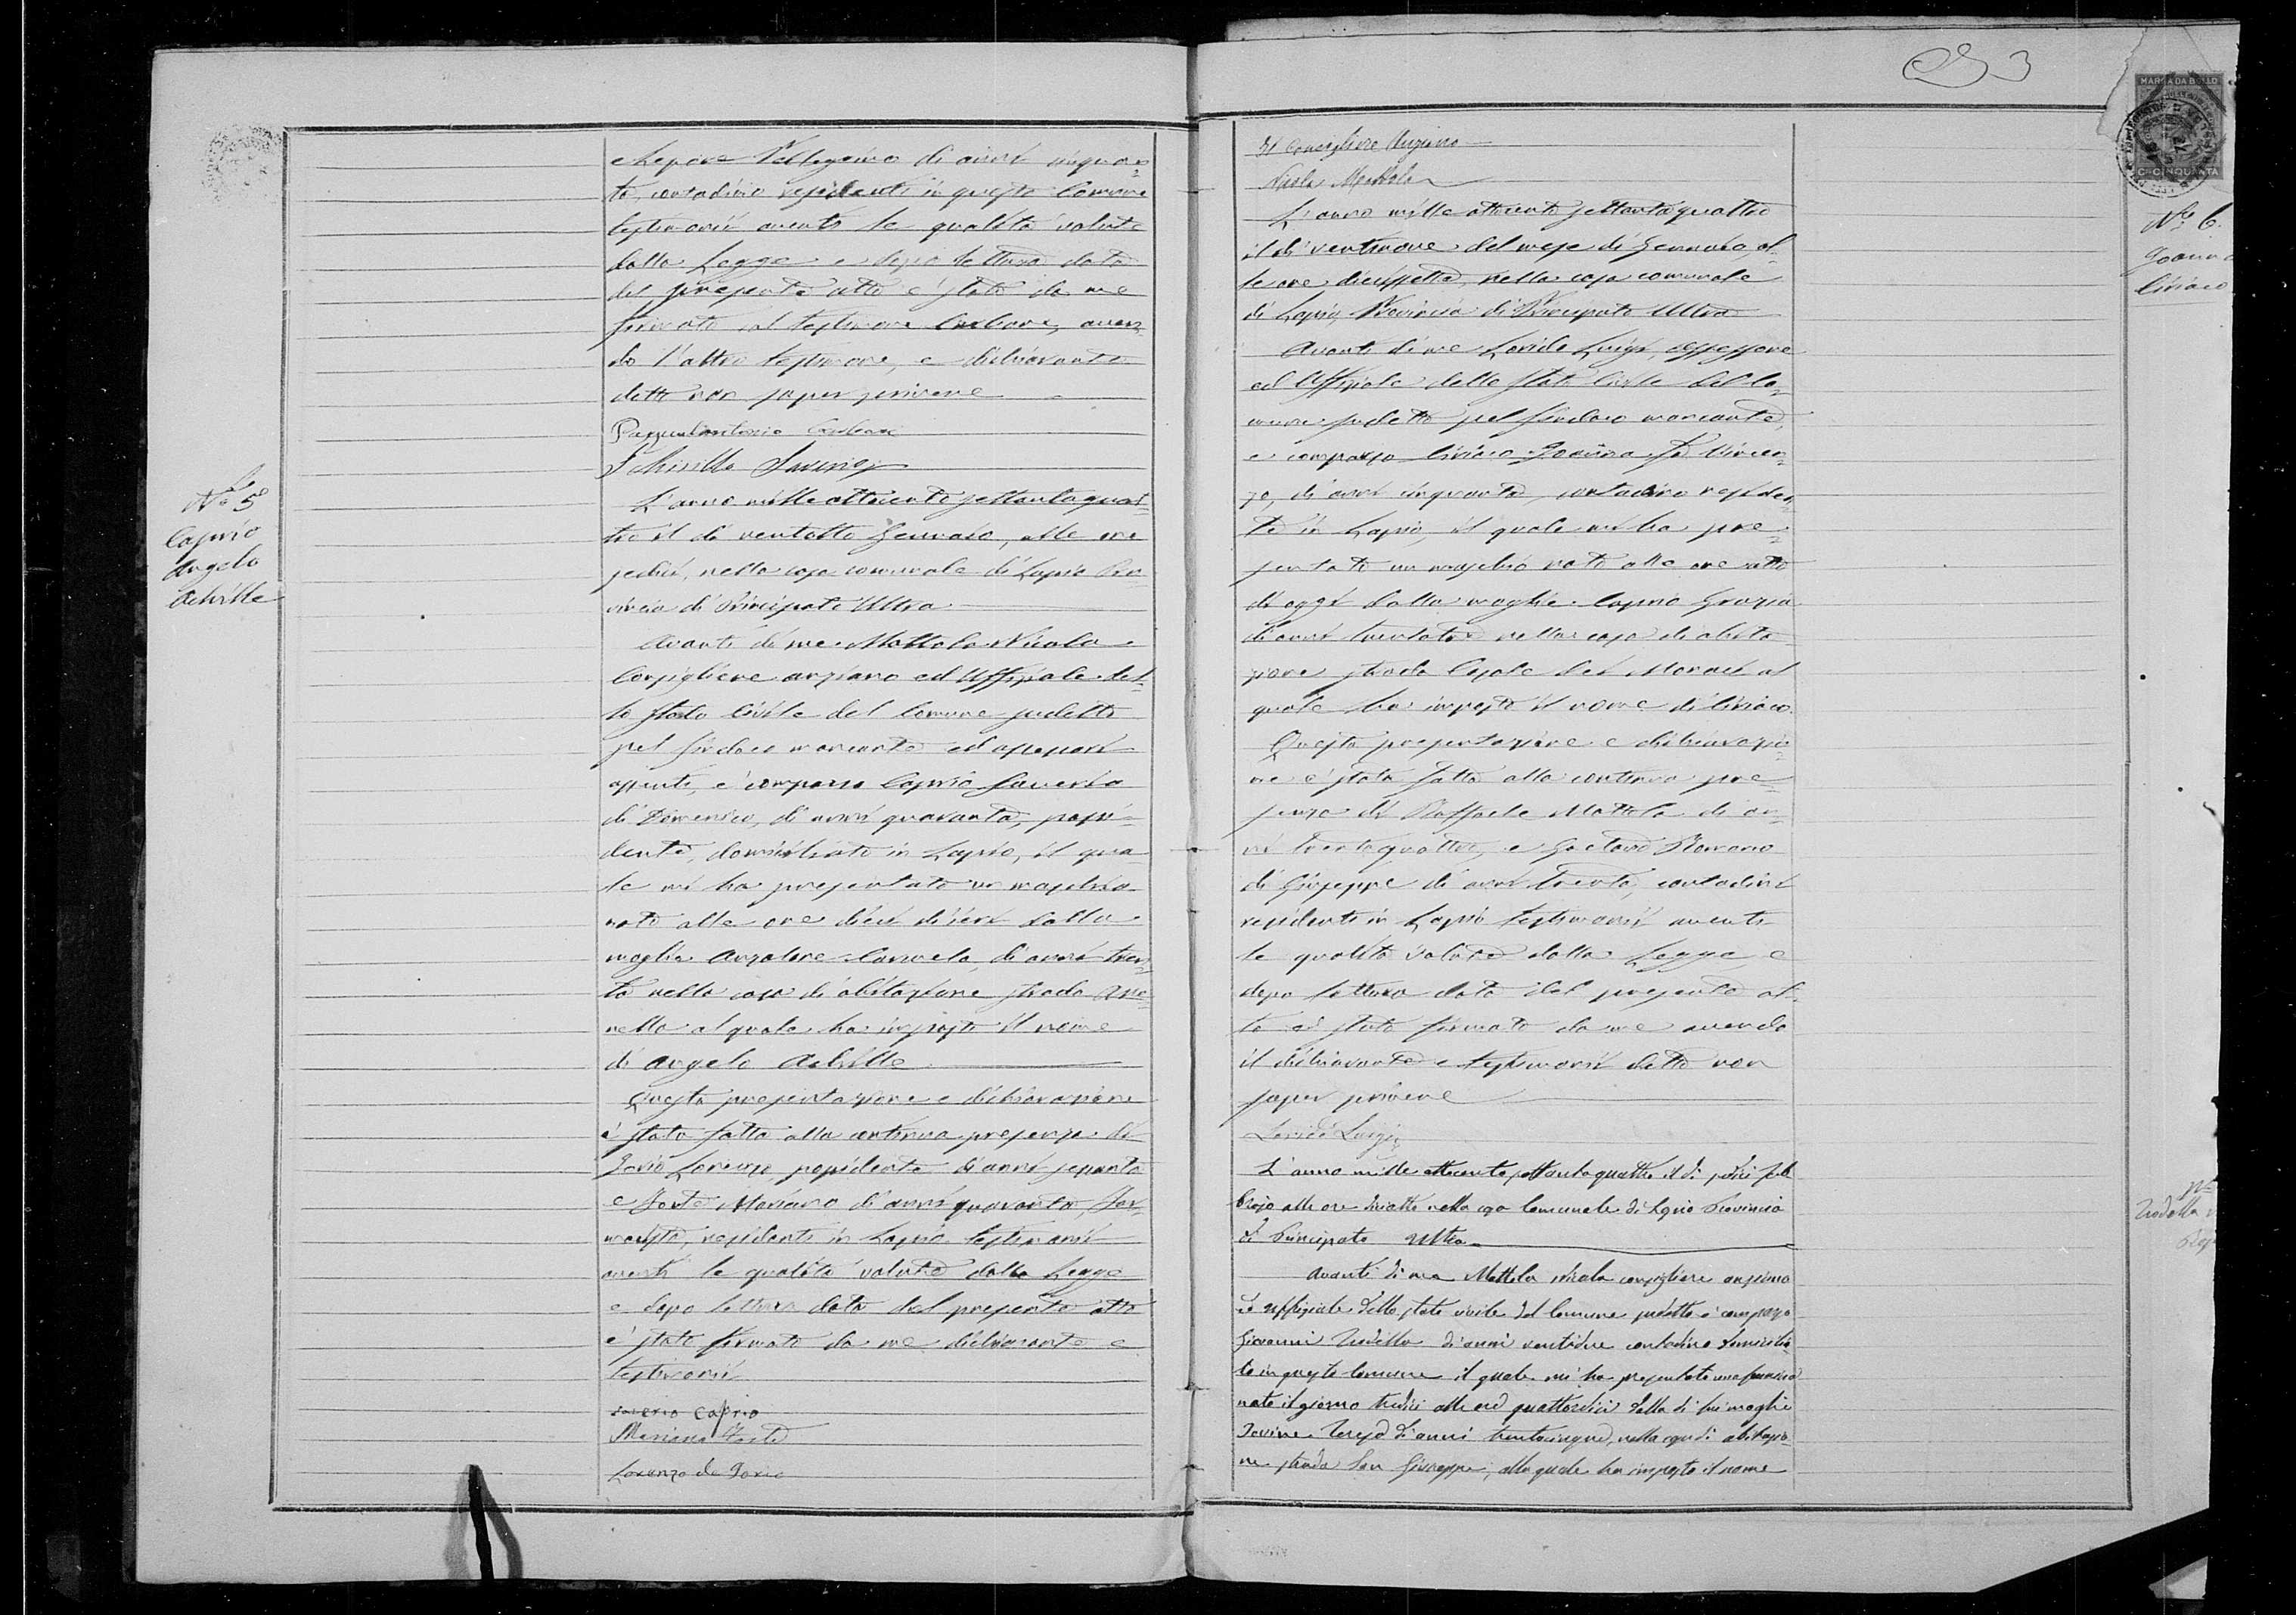 Pellegrino di anni cinquan=
ta, contadino residenti in questo Comune
testimonii aventi le qualità volute
dalla Legge e dopo lettura data
del presente atto è stato da me
firmato col testimone aven=
do l'altro testimone, e dichiarante
detto non saper scrivere
Schirillo
N.º 5º
Caprio
Angelo
Achille
L'anno mille ottocento settantaquat=
tro il dì ventotto Gennaio, alle ore
sedici, nella casa comunale di Lapio Pro
vincia di Principato Ultra
Avanti di me Mottola Nicola
Consigliere anziano ed Uffiziale del=
lo Stato Civile del Comune sudetto
pel Sindaco mancante ed assessori
assenti, è comparso Caprio Saverio
di Domenico, di anni quaranta, possi=
dente, domiciliato in Lapio, il qua
le mi ha presentato un maschio
nato alle ore dieci di ieri dalla
moglie Anzalone Carmela, di anni tren=
ta nella casa di abitazione strada
nella al quale ha imposto il nome
di Angelo Achille
Questa presentazione e dichiarazione
è stata fatta alla continua presenza di
Iorio Lorenzo possidente di anni sessanta
e Forte Mariano di anni quaranta, far=
macista, residenti in Lapio testimonii
aventi le qualità volute dalla Legge
e dopo lettura data del presente atto
è stato firmato da me dichiarante e
testimonii
Saverio Caprio
Mariano Forte
Lorenzo de Iorio
3
MARCA DA BOLLO
C. CINQUANTA
Il Consigliere Anziano
Nicola Mottola
N.º 6.
Ciriaco
L'anno mille ottocento settantaquattro
il dì ventinove del mese di Gennaio, al=
le ore diecissette, nella casa comunale
di Lapio, Provincia di Principato Ultra
Avanti di me Luigi, assessore
ed Uffiziale dello Stato Civile del Co=
mune sudetto pel Sindaco mancante,
è comparso Ciriaco fu Vincen=
zo, di anni cinquanta, contadino residen=
te in Lapio, il quale mi ha pre=
sentato un maschio nato alle ore sette
di oggi dalla moglie Caprio Grazia
di anni trentatre nella casa di abita
zione strada Casale dei Monaci al
quale ha imposto il nome di Ciriaco.
Questa presentazione e dichiarazio=
ne è stata fatta alla continua pre=
senza di Raffaele Mottola di an=
ni trentaquattro, e Gaetano Romano
di Giuseppe di anni trenta, contadini
residenti in Lapio testimonii aventi
le qualità volute dalla Legge, e
dopo lettura data del presente at=
to è stato firmato da me avendo
il dichiarante e testimonii detto non
saper scrivere
Luigi
L'anno mille ottocento settantaquattro il dì sedici feb
braio alle ore diciotto nella casa Comunale di Lapio Provincia
di Principato Ultra
Avanti di me Mottola Nicola consigliere anziano
ed uffiziale dello stato civile del Comune sudetto è comparso
Giovanni di anni ventidue contadino domicilia=
to in questo Comune il quale mi ha presentato una femina
nata il giorno tredici alle ore quattordici dalla di sui moglie
Teresa di anni trentacinque, nella casa di abitazio=
ne strada San Giuseppe, alla quale ha imposto il nome